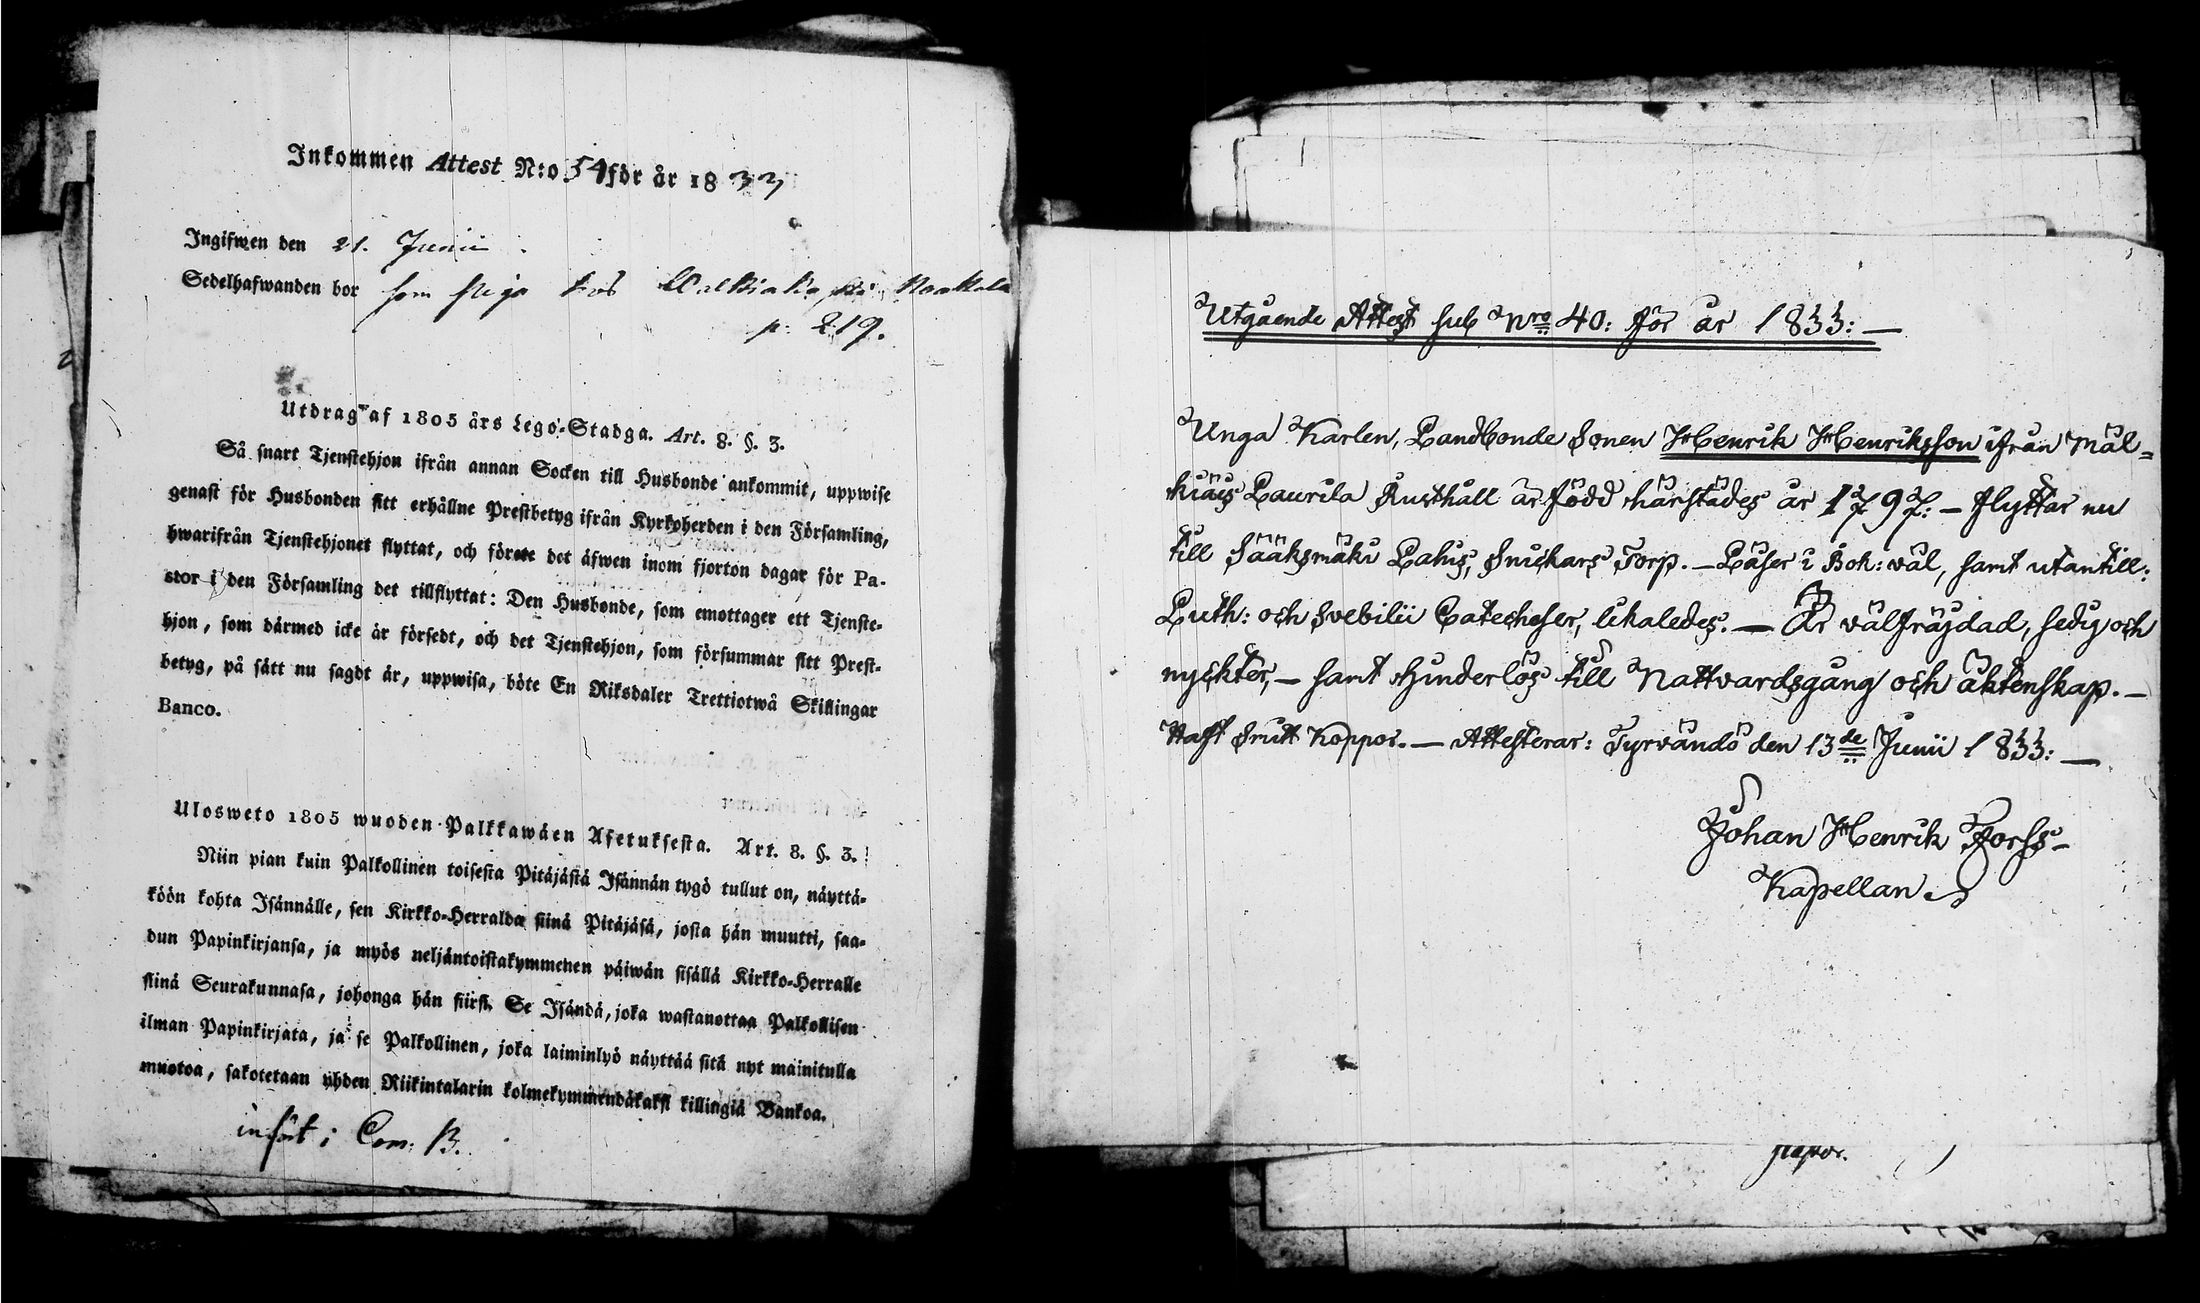 Inkommen Attest N:o 54 för år 1833
Ingifwen den 21. Junii
Sedelhafwanden bor som piga hos
p: 219.
Utdrag af 1805 års Lego-Stadga. Art. 8. §. 3.
Så snart Tjenstehjon ifrån annan Socken till Husbonde ankommit, uppwise
genast för Husbonden sitt erhållne Prestbetyg ifrån Kyrkoherden i den Församling,
hwarifrån Tjenstehjonet flyttat, och förete det äfwen inom fjorton dagar för Pa-
stor i den Församling det tillflyttat: Den Husbonde, som emottager ett Tjenste-
hjon, som därmed icke är försedt, och det Tjenstehjon, som försummar sitt Prest-
betyg, på sätt nu sagdt är, uppwisa, böte En Riksdaler Trettiotwå Skillingar
Banco.
Ulosweto 1805 wuoden Palkkawäen Asetuksesta. Art. 8. §. 3.
Niin pian kuin Palkollinen toisesta Pitäjästä Isännän tygö tullut on, näyttä-
köön kohta Isännälle, sen Kirkko-Herralda siinä Pitäjäsä, josta hän muutti, saa-
dun Papinkirjansa, ja myös neljäntoistakymmenen päiwän sisällä Kirkko-Herralle
siinä Seurakunnasa, johonga hän siirsi. Se Isändä, joka wastanottaa Palkollisen
ilman Papinkirjata, ja se Palkollinen, joka laiminlyö näyttää sitä nyt mainitulla
muotoa, sakotetaan yhden Riikintalarin kolmekymmendäkaksi killingiä Bankoa.
infört i Com. B.
Utgående Attest sub Nro 40: för år 1833: —
Unga Karlen, Landbonde Sonen Henrik Henriksson ifrån Mäl-
kiäis Laurila Rusthåll är född härstädes år 1797: — flyttar nu
till Sääksmäki Lahis, Snickars Torp. — Läser i Bok: väl, samt utantill:
Luth: och Svebilii Catecheser, likaledes. — Är välfräjdad, sedig och
nyckter, — samt hinderlös till Nattvardsgång och äktenskap. —
Haft Smitt Koppor. — Attesterar: Tyrvändö den 13de Junii 1833: —
Johan Henrik Forss —
Kapellan
papor.